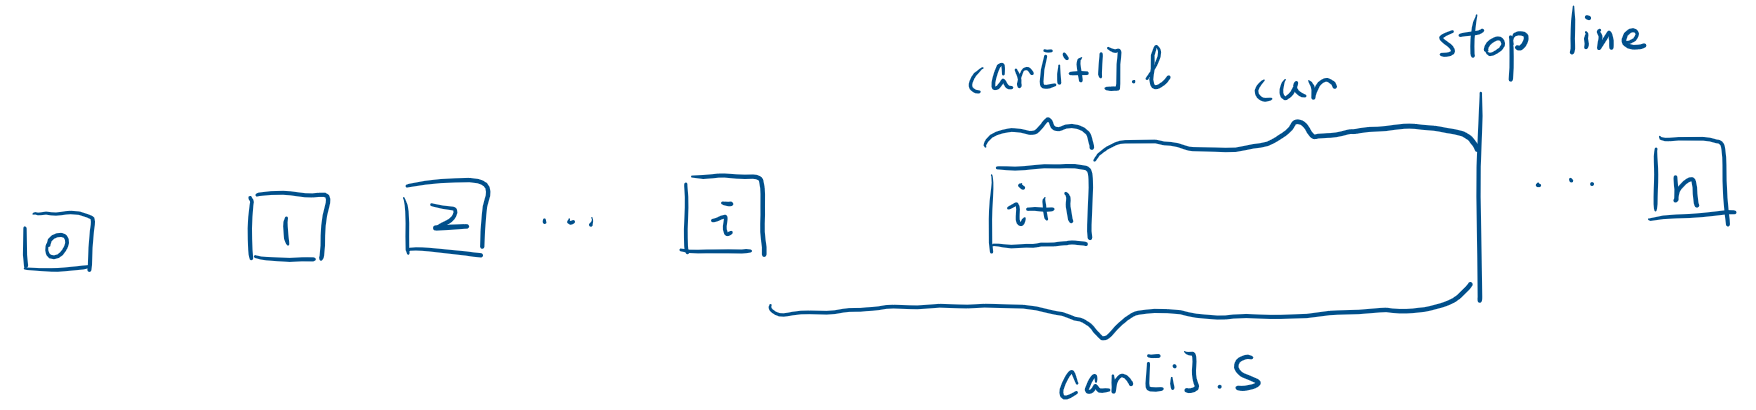 stop line
car[i+1].l
cur
0 1 2 ... i i+1 ... n
car[i].s